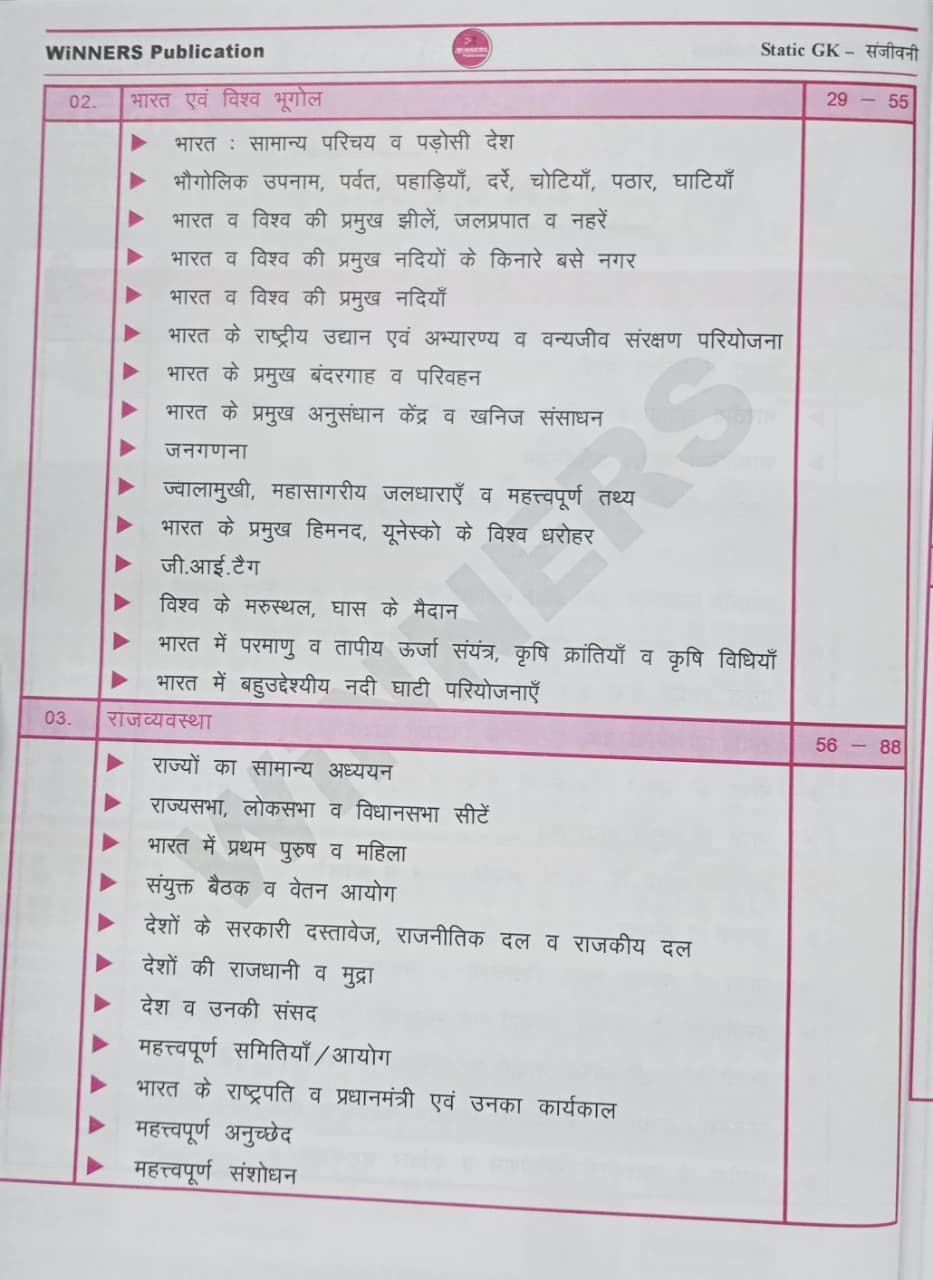 WiNNERS Publication
WiNNERS
Static GK – संजीवनी
02. भारत एवं विश्व भूगोल 29 – 55
भारत : सामान्य परिचय व पड़ोसी देश
भौगोलिक उपनाम, पर्वत, पहाड़ियाँ, दर्रे, चोटियाँ, पठार, घाटियाँ
भारत व विश्व की प्रमुख झीलें, जलप्रपात व नहरें
भारत व विश्व की प्रमुख नदियों के किनारे बसे नगर
भारत व विश्व की प्रमुख नदियाँ
भारत के राष्ट्रीय उद्यान एवं अभ्यारण्य व वन्यजीव संरक्षण परियोजना
भारत के प्रमुख बंदरगाह व परिवहन
भारत के प्रमुख अनुसंधान केंद्र व खनिज संसाधन
जनगणना
ज्वालामुखी, महासागरीय जलधाराएँ व महत्त्वपूर्ण तथ्य
भारत के प्रमुख हिमनद, यूनेस्को के विश्व धरोहर
जी.आई.टैग
विश्व के मरुस्थल, घास के मैदान
भारत में परमाणु व तापीय ऊर्जा संयंत्र, कृषि क्रांतियाँ व कृषि विधियाँ
भारत में बहुउद्देश्यीय नदी घाटी परियोजनाएँ
03. राजव्यवस्था 56 – 88
राज्यों का सामान्य अध्ययन
राज्यसभा, लोकसभा व विधानसभा सीटें
भारत में प्रथम पुरुष व महिला
संयुक्त बैठक व वेतन आयोग
देशों के सरकारी दस्तावेज, राजनीतिक दल व राजकीय दल
देशों की राजधानी व मुद्रा
देश व उनकी संसद
महत्त्वपूर्ण समितियाँ/आयोग
भारत के राष्ट्रपति व प्रधानमंत्री एवं उनका कार्यकाल
महत्त्वपूर्ण अनुच्छेद
महत्त्वपूर्ण संशोधन
WiNNERS